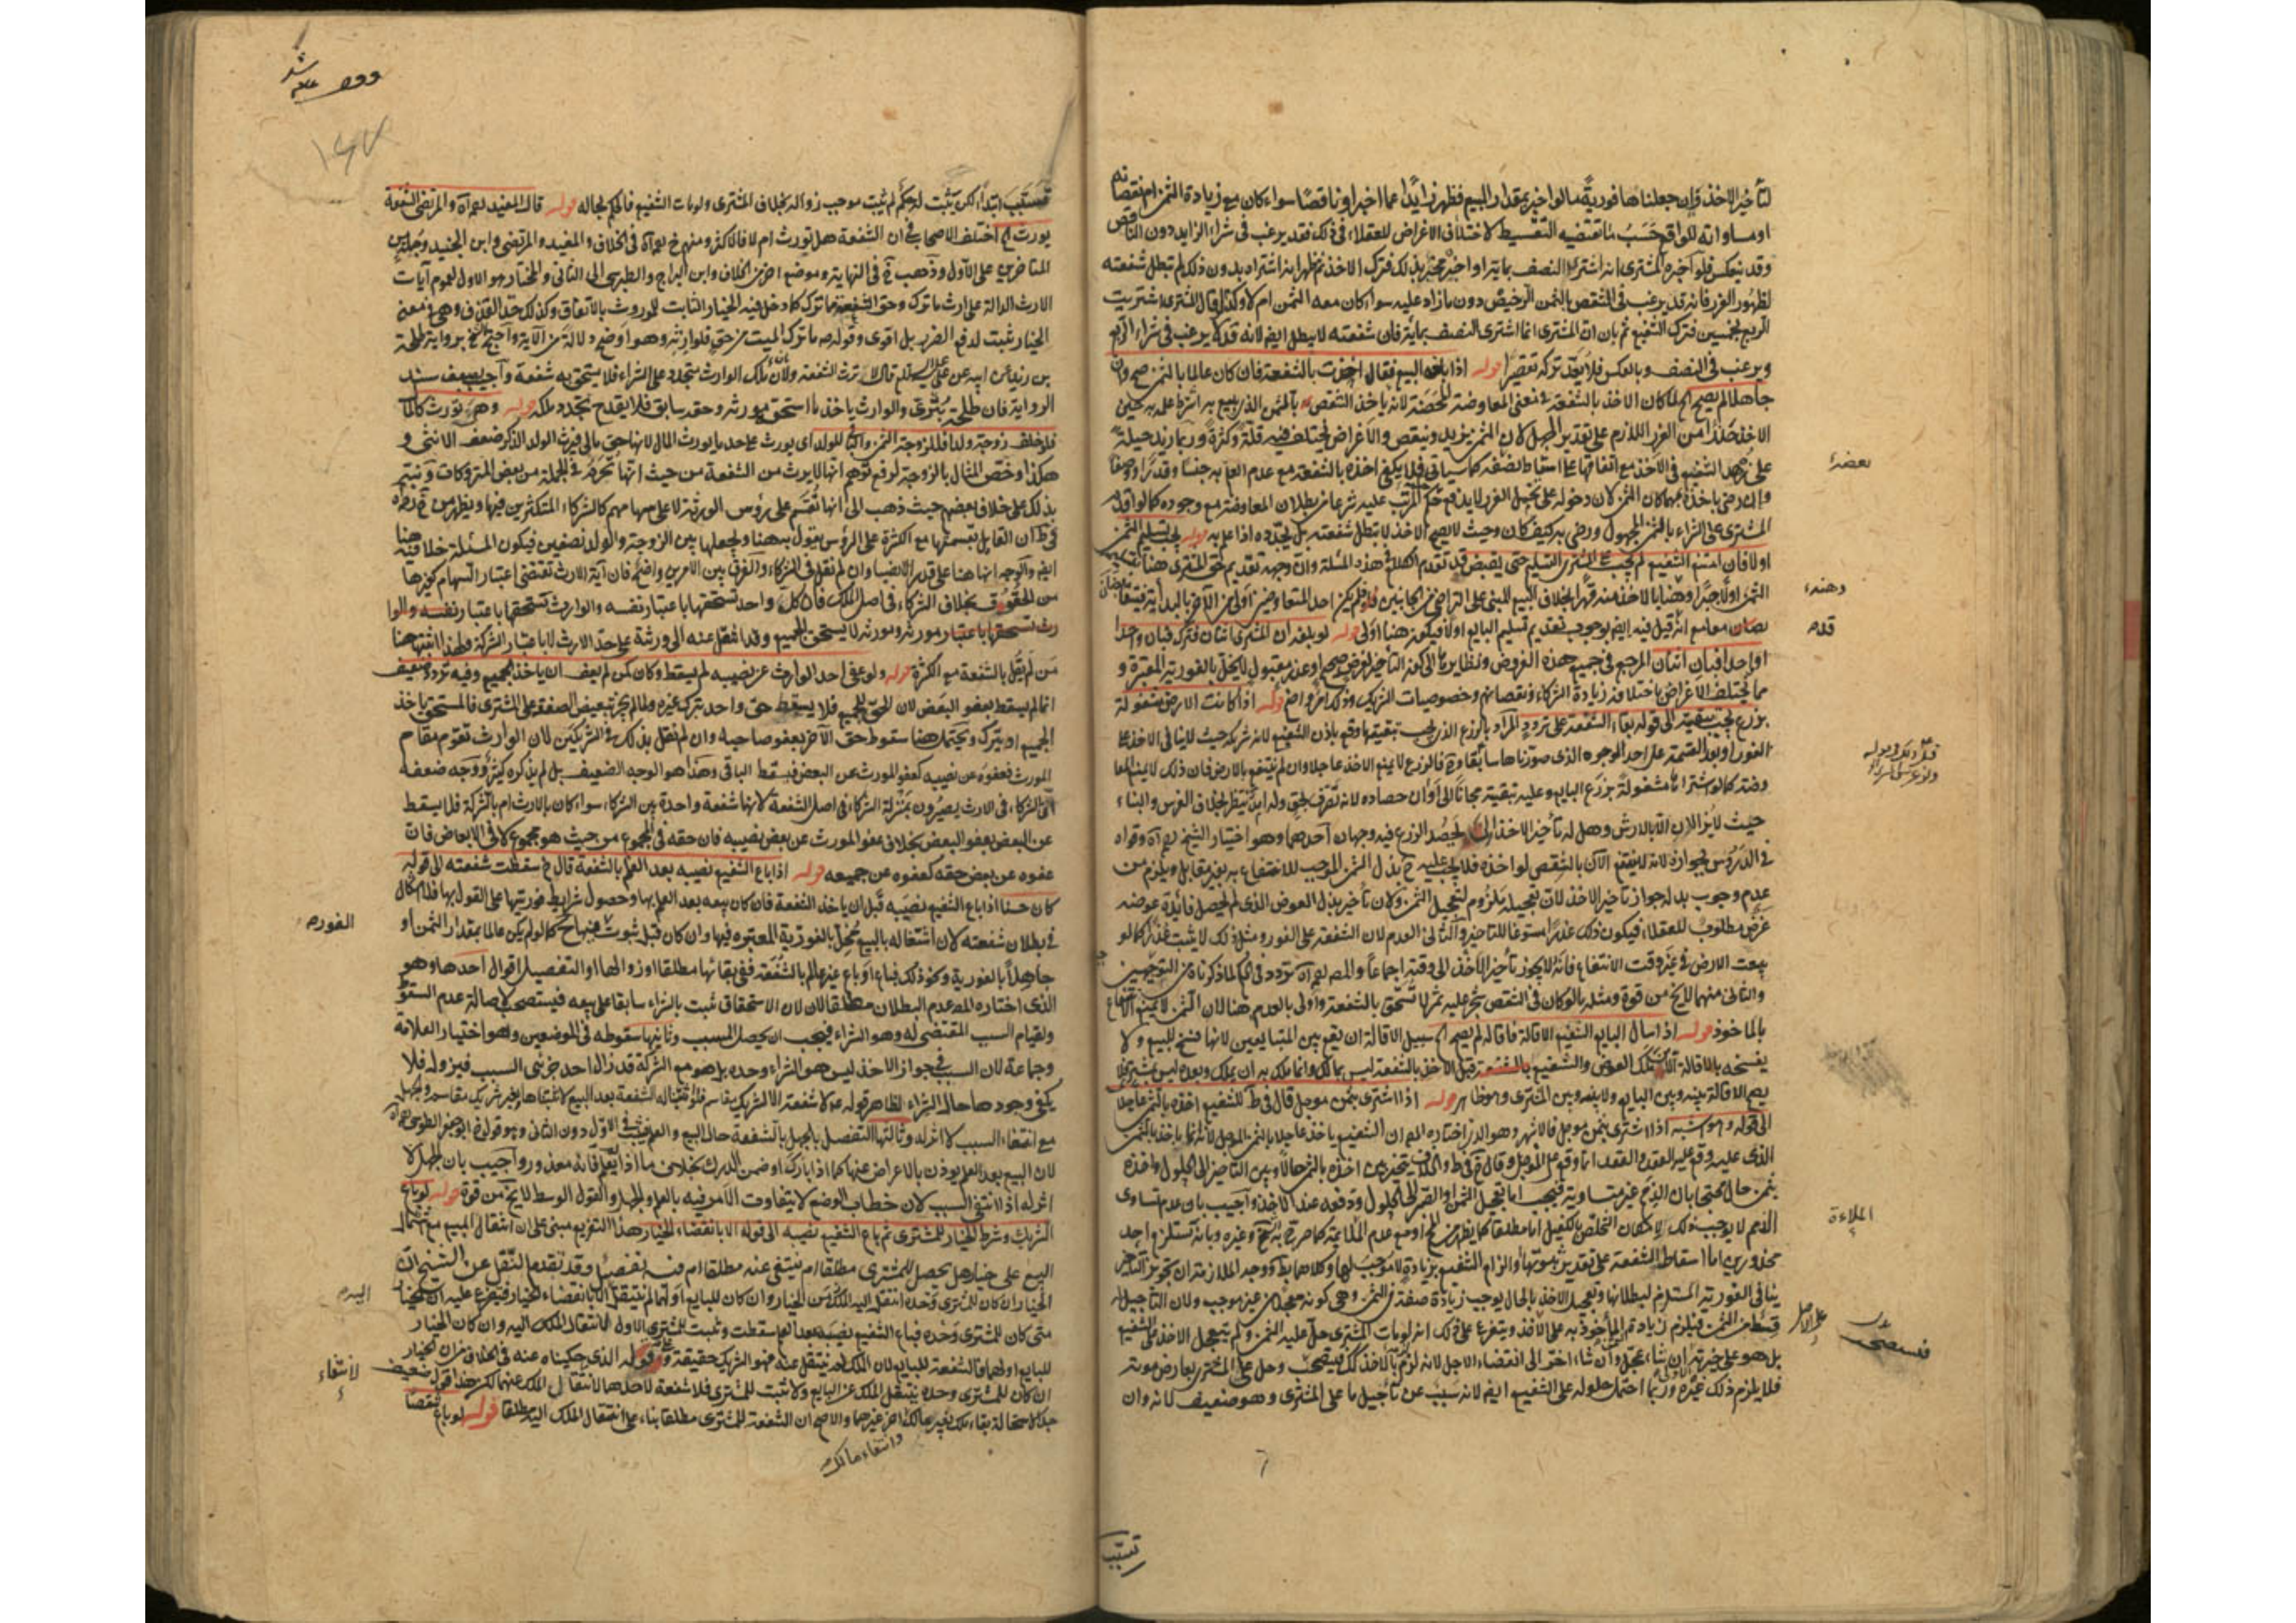 لتأخير الاخذ فإن جعلناها فورية مالو اخبر بمقدار المبيع فظهر زايدا عما اخبر او ناقصا سواء كان مع زيادة الثمن ام نقصانه
او مساواته للواقع حسب ما تقتضيه التقسيط لاختلاف الاغراض للعقلاء في ذلك فقد يرغب في شراء الزايد دون الناقص
وقد ينعكس فلو اخبره المشتري انه اشترى النصف بماية او اخبره مخبر بذلك فترك الاخذ ثم ظهر انه اشتراه بدون ذلك لم تبطل شفعته
لظهور الغرر فانه قد يرغب في الشقص بالثمن الرخيص دون ما زاد عليه سواء كان معه الثمن ام لا وكذا لو قال المشتري اشتريت
الربع بخمسين فترك الشفيع ثم بان ان المشترى انما اشترى النصف بماية فان شفعته لا يبطل ايضا لانه قد لا يرغب في شراء الربع
ويرغب في النصف وبالعكس فلا يعد تركه تقصيرا قوله اذا بلغه البيع فقال اخذت بالشفعة فان كان عالما بالثمن صح وان
جاهلا لم يصح لما كان الاخذ بالشفعة في معنى المعاوضة المحضة لانه ياخذ الشقص بالثمن الذي بيع به اشترط علمه به حين
الاخذ حذرا من الغرر اللازم على تقدير الجهل لان الثمن يزيد وينقص والاغراض يختلف فيه قلة وكثرة وربما زيد حيلة
على زهد الشفيع في الاخذ مع اتفاقهما على اسقاط بعضه كما سياتي فلا يكفي اخذه بالشفعة مع عدم العلم به جنسا وقدرا ووصفا
وان رضي باخذه مهما كان الثمن لان دخوله على تحمل الغرر لا يدفع حكم المرتب عليه شرعا من بطلان المعاوضة مع وجوده كما لو اقدم
المشترى على الشراء بالثمن المجهول ورضي به كيف كان وحيث لا يصح الاخذ لا تبطل شفعته بل يجدده اذا علم به قوله يجب تسليم الثمن
اولا فان امتنع الشفيع لم يجب على المشترى التسليم حتى يقبض قد تقدم الكلام في هذه المسئلة وان وجه تقديم حق المشترى هنا
الثمن اولا جبرا وهنا بالاخذ منه قهرا بخلاف البيع المبنى على التراضي من الجانبين فلم يكن احد المتعاوضين اولى من الآخر بالبداية فيتقا
بضان معا مع انه قيل فيه ايضا بوجوب تقديم تسليم البايع اولا فيكون هنا اولى قوله لو بلغه ان المشترى اثنان فترك فبان واحدا
او واحد فبان اثنان المرجع في جميع هذه الفروض ونظايرها الى كون التأخير لغرض صحيح او عذر مقبول لا يخل بالفورية المعتبرة و
مما يختلف الاغراض باختلافه زيادة الشركاء ونقصانهم وخصوصيات الشريك وذلك امر واضح قوله اذا كانت الارض مشغولة
بزرع يجب تبقيته الى قوله بقاء الشفعة على تردد المراد بالزرع الذي يجب تبقيته ما وقع باذن الشفيع لانه شريك حيث لا ينافي الاخذ على
الفور او بعد القسمة على احد الوجوه الذي صورناها سابقا وح فالزرع لا يمنع الاخذ عاجلا وان لم ينتفع بالارض فان ذلك لا يمنع المعا
وضة كما لو اشترا ارضا مشغولة بزرع البايع وعليه تبقيته مجانا الى اوان حصاده لانه تصرف بحق وله امد ينتظر بخلاف الغرس والبناء
حيث لا يزالان الا بالارش وهل له تأخير الاخذ الى ان يحصد الزرع فيه وجهان احدهما وهو اختيار الشيخ رحمه الله وقواه
في الدروس بجوازه لانه لا ينتفع الآن بالشقص لو اخذه فلا يجب عليه ح بذل الثمن الموجب للانتفاع به بغير مقابل ويلزم من
عدم وجوب بدله جواز تأخير الاخذ لان تعجيله ملزوم لتعجيل الثمن ولان تأخير بذل العوض الذى لم يحصل فائدة عوضه
غرض مطلوب للعقلاء فيكون ذلك عذرا مسوغا للتاخير والثاني العدم لان الشفعة على الفور ومثل ذلك لا يثبت عذرا كما لو
بيعت الارض في غير وقت الانتفاع فانه لا يجوز تأخير الاخذ الى وقته اجماعا والمص رحمه الله تردد في الحكم لما ذكرناه من التوجيهين
والثاني منهما لا يخ من قوة ومثله ما لو كان في الشقص شجر عليه ثمر لا تستحق بالشفعة واولى بالعدم هنا لان الثمن لا يمنع الانتفاع
بالماخوذ قوله اذا سال البايع الشفيع الاقالة فاقاله لم يصح سبيل الاقالة ان يقع بين المتبايعين لانها فسخ للبيع ولا
يفسخه بالاقالة الا من ملك العوض والشفيع بالشفعة قبل الاخذ بالشفعة ليس بمالك وانما ملك به ان يملك وبعده ليس بمشتر فلا
يصح الاقالة بينه وبين البايع ولا بينه وبين المشترى وهو ظاهر قوله اذا اشترى بثمن موجل قال في ط للشفيع اخذه بالثمن عاجلا
الى قوله وهو اشبه اذا اشترى بثمن موجل فالاشهر وهو الذى اختاره المص ان الشفيع ياخذ عاجلا بالثمن الموجل لانه انما ياخذ بالثمن
الذى عليه وقع عليه العقد والعقد انما وقع على الموجل وقال الشيخ في ط والخلاف يتخير بين اخذه بالثمن حالا وبين التاخير الى الحلول واخذه
بثمن حال محتجا بان الذمم غير متساوية فيجب اما تعجيل الثمن او الصبر الى الحلول ودفعه عند الاخذ واجيب بان عدم تساوى
الذمم لا يوجب ذلك لامكان التخلص بالكفيل اما مطلقا كما يظهر من الشيخ او مع عدم الملاءة كما صرح به الشيخ وغيره وبانه تستلزم احد
محذورين اما اسقاط الشفعة على تقدير ثبوتها او الزام الشفيع بزيادة لا موجب لها وكلاهما بط ووجه الملازمة ان تجويز التأخير
ينافي الفورية المستلزم لبطلانها وتعجيل الاخذ بالحال يوجب زيادة صفة في الثمن وهي كونه معجلا من غير موجب ولان التاجيل له
قسط من الثمن فيلزم زيادته المأخوذ به على الاخذ ويتفرع على ذلك انه لو مات المشترى حل عليه الثمن ولم يتعجل الاخذ على الشفيع
بل هو على خيرته ان شاء عجل وان شاء اخر الى انقضاء الاجل لانه لو لم يأخذ كذلك فيصح وحل على المشترى بعارض موته
فلا يلزم ذلك غيره وربما احتمل حلوله على الشفيع ايضا لانه سبب عن تأجيل ما على المشترى وهو ضعيف لانه وان
بعضه
وهنه
قدم
الملاءة
على الاصل
تسبب
تسبب ابتداء لكن يثبت له حكم لم يثبت موجب زواله بخلاف المشترى ولو مات الشفيع فالحكم بحاله قوله قال المفيد رحمه الله والمرتضى الشفعة
يورث اختلف الاصحاب في ان الشفعة هل تورث ام لا فالاكثر ومنهم الشيخ رحمه الله في الخلاف والمفيد والمرتضى وابن الجنيد وجملة من
المتاخرين على الاول وذهب الشيخ في النهاية وموضع اخر من الخلاف وابن البراج والطبرسي الى الثاني والمختار هو الاول لعموم آيات
الارث الدالة على ارث ما ترك وحق الشفعة مما ترك كما دخل فيه الخيار الثابت للموروث بالاتفاق وكذلك حد القذف وهي في معنى
الخيار ثبتت لدفع الضرر بل اقوى وقوله ص ما ترك الميت من حق فلوارثه وهو اوضح دلالة من الآية واحتج الشيخ برواية طلحة
بن زيد عن ابيه عن علي عليه السلام قال لا تورث الشفعة ولان ملك الوارث متجدد على الشراء فلا يستحق به شفعة واجيب بضعف سند
الرواية فان طلحة بتري والوارث ياخذ ما استحق مورثه وحقه سابق فلا يقدح تجدد ملكه قوله وهي تورث كالمال
فلو خلف زوجة وولدا فللزوجة الثمن والباقي للولد اى يورث على حد ما يورث المال لانها حق مالى فيرث الولد الذكر ضعف الانثى و
هكذا وخص المثال بالزوجة لرفع توهم انها لا يرث من الشفعة من حيث انها تحرم في الجملة من بعض المتروكات ونبه
بذلك على خلاف بعضهم حيث ذهب الى انها تقسم على رؤس الورثة لا على سهامهم كالشركاء المتكثرين فيها ويظهر من الشيخ رحمه الله
في ط ان القايل بقسمتها مع الكثرة على الرؤس يقول به هنا ويجعلها بين الزوجة والولد نصفين فيكون المسئلة خلافية هنا
ايضا والوجه انها هنا على قدر الانصباء وان لم نقل في الشركاء والفرق بين الامرين واضح فان آية الارث تقتضى اعتبار السهام كغيرها
من الحقوق بخلاف الشركاء في اصل الملك فان كل واحد تستحقها باعتبار نفسه والوارث تستحقها باعتبار نفسه والوا
رث تستحقها باعتبار مورثه ومورثه لا يستحق الجميع وقد انتقل عنه الى ورثته على حد الارث لا باعتبار الشركة ولهذا اثبتها هنا
من لم يقل بالشفعة مع الكثرة قوله ولو عفى احد الوراث عن نصيبه لم يسقط وكان لمن لم يعف ان ياخذ الجميع وفيه تردد ضعيف
انما لم يسقط بعفو البعض لان الحق للجميع فلا يسقط حق واحد بترك غيره ولما لم يجز تبعيض الصفقة على المشترى فالمستحق ياخذ
الجميع او يترك ويحتمل هنا سقوط حق الآخر بعفو صاحبه وان لم نقل بذلك في الشريكين لان الوارث تقوم مقام
المورث فعفوه عن نصيبه كعفو المورث عن البعض فيسقط الباقي وهذا هو الوجه الضعيف بل لم يذكره كثير ووجه ضعفه
ان الشركاء في الارث يصيرون بمنزلة الشركاء في اصل الشفعة لانها شفعة واحدة بين الشركاء سواء كان بالارث ام بالشركة فلا يسقط
عن البعض بعفو البعض بخلاف عفو المورث عن بعض نصيبه فان حقه في المجموع من حيث هو مجموع لا في الابعاض فان
عفوه عن بعض حقه كعفوه عن جميعه قوله اذا باع الشفيع نصيبه بعد العلم بالشفعة قال الشيخ سقطت شفعته الى قوله
كان حسنا اذا باع الشفيع نصيبه قبل ان ياخذ الشفعة فان كان بيعه بعد العلم بها وحصول شرايط فوريتها على القول بها فلا اشكال
في بطلان شفعته لان اشتغاله بالبيع مخل بالفورية المعتبرة فيها وان كان قبل ثبوت كما لو لم يكن عالما بمقدار الثمن او
جاهلا بالفورية ونحو ذلك فباع او باع غير عالم بالشفعة ففي بقائها مطلقا او زوالها او التفصيل اقوال احدها وهو
الذى اختاره المص عدم البطلان مطلقا لان الاستحقاق ثبت بالشراء سابقا على بيعه فيستصحب لاصالة عدم السقوط
ولقيام السبب المقتضى له وهو الشراء فيجب ان يحصل المسبب وثانيها سقوطه في الموضعين وهو اختيار العلامة
وجماعة لان السبب في جواز الاخذ ليس هو الشراء وحده بل هو مع الشركة وقد زال احد جزئي السبب فيزول فلا
يكفى وجودها حال الشراء لظاهر قوله عليه السلام لا شفعة الا لشريك مقاسم فلو اثبتنا له الشفعة بعد البيع لاثبتناها لغير شريك مقاسم والجهل
مع انتفاء السبب لا اثر له وثالثها التفصيل بالجهل بالشفعة حال البيع والعلم فيثبت في الاول دون الثاني وهو قول الشيخ ابو جعفر الطوسي رحمه الله
لان البيع بعد العلم يوذن بالاعراض عنها كما اذا بارك او ضمن الدرك بخلاف ما اذا لم يعلم فانه معذور واجيب بان الجهل لا
اثر له اذا انتفى السبب لان خطاب الوضع لا يتفاوت الامر فيه بالعلم والجهل والقول الوسط لا يخ من قوة قوله لو باع
الشريك وشرط الخيار للمشترى ثم باع الشفيع نصيبه الى قوله الا بانقضاء الخيار هذا التفريع مبنى على ان انتقال المبيع مع اشتمال
البيع على خيار هل تحصل للمشترى مطلقا ام ينتفى عنه مطلقا ام فيه تفصيل وقد تقدم النقل عن الشيخ ان
الخيار ان كان للمشترى وحده انتقل اليه الملك زمن الخيار وان كان للبايع او لهما لم ينتقل الا بانقضاء الخيار فيتفرع عليه ان الخيار
متى كان للمشترى وحده فباع الشفيع نصيبه بعد العلم سقطت وثبتت للمشترى الاول لانتقال الملك اليه وان كان الخيار
للبايع او لهما فالشفعة للبايع لان الملك لم ينتقل عنه فهو الشريك حقيقة وعلى قوله الذى حكيناه عنه في الخلاف من ان الخيار
ان كان للمشترى وحده ينتقل الملك عن البايع ولا يثبت للمشترى فلا شفعة لاحدهما لانتقال الملك عنهما لكن هذا قول ضعيف
جدا لاستحالة بقاء ملك بغير مالك اخر غيرهما والاصح ان الشفعة للمشترى مطلقا بناء على انتقال الملك اليه مطلقا قوله لو باع شقصا
الفورية
لانتفاء
وانتفاء مالك